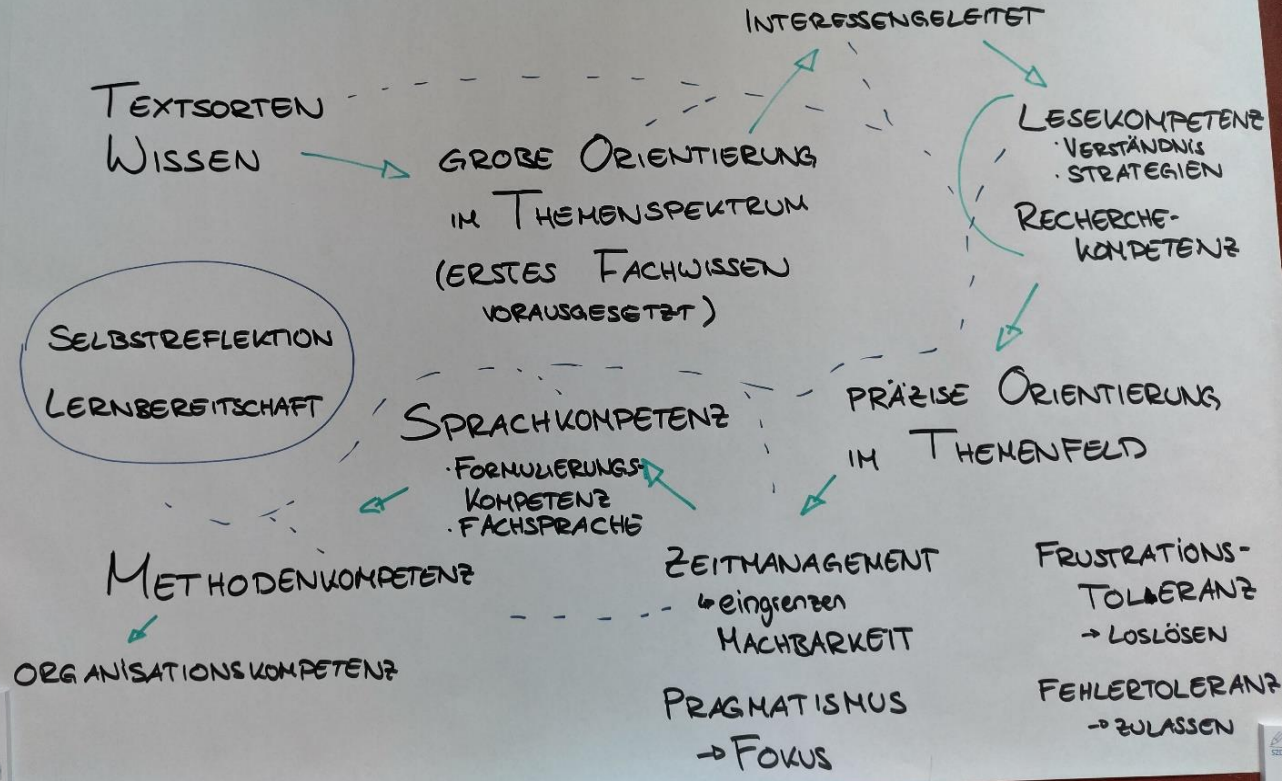 INTERESSENGELEITET
TEXTSORTEN
WISSEN
GROBE ORIENTIERUNG
IM THEMENSPEKTRUM
(ERSTES FACHWISSEN
VORAUSGESETZT)
LESEKOMPETENZ
· VERSTÄNDNIS
· STRATEGIEN
RECHERCHE-
KOMPETENZ
SELBSTREFLEKTION
LERNBEREITSCHAFT
PRÄZISE ORIENTIERUNG
IM THEMENFELD
SPRACHKOMPETENZ
· FORMULIERUNGS-
KOMPETENZ
· FACHSPRACHE
METHODENKOMPETENZ
ORGANISATIONSKOMPETENZ
ZEITMANAGEMENT
↳ eingrenzen
MACHBARKEIT
PRAGMATISMUS
→ FOKUS
FRUSTRATIONS-
TOLERANZ
→ LOSLÖSEN
FEHLERTOLERANZ
→ ZULASSEN